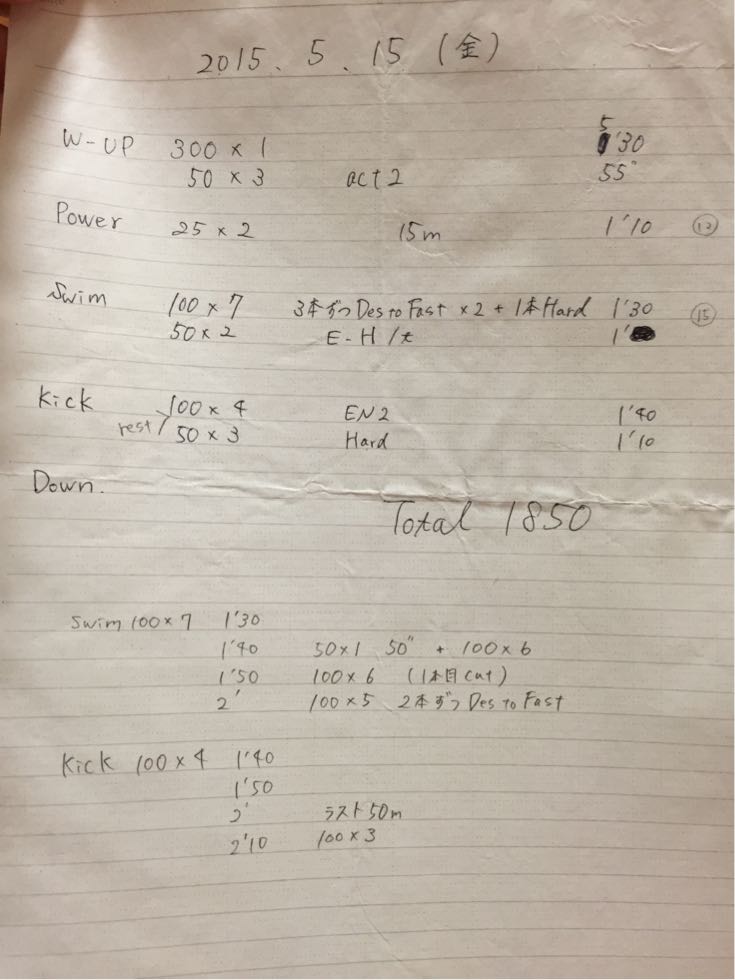 2015. 5. 15 (金)
W-UP 300 × 1 5'30
50 × 3 act 2 55"
Power 25 × 2 15m 1'10 ⑫
Swim 100 × 7 3本ずつ Des to Fast × 2 + 1本 Hard 1'30 ⑮
50 × 2 E-H /t 1'
Kick 100 × 4 EN2 1'40
rest / 50 × 3 Hard 1'10
Down.
Total 1850
Swim 100 × 7 1'30
1'40 50×1 50" + 100×6
1'50 100×6 (1本目 cut)
2' 100×5 2本ずつ Des to Fast
Kick 100 × 4 1'40
1'50
2' ラスト50m
2'10 100×3